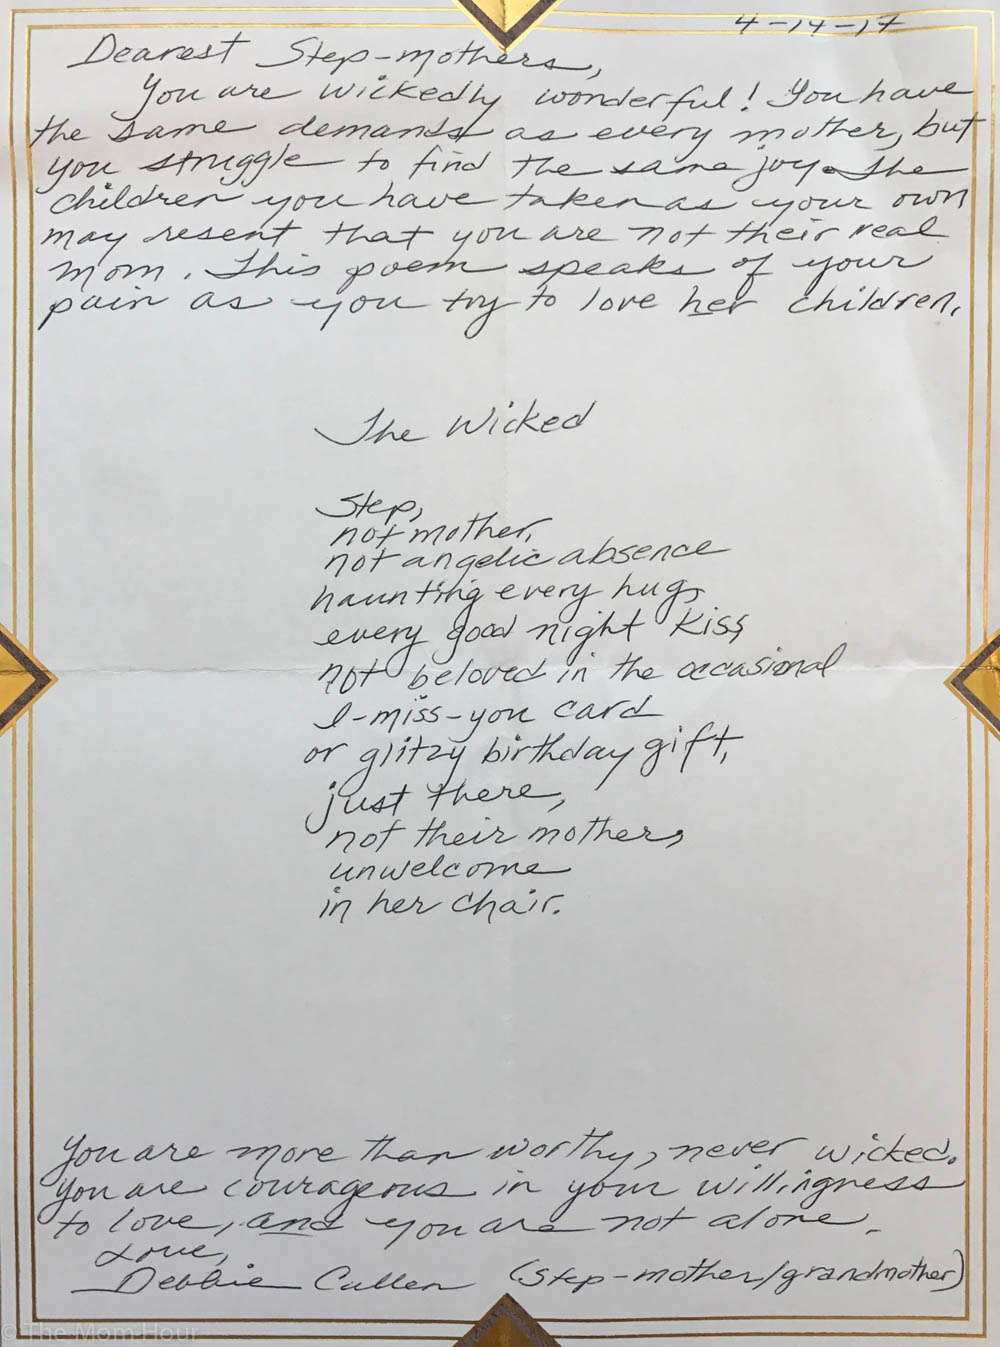 4-14-17
Dearest Step-mothers,
You are wickedly wonderful! You have
the same demands as every mother, but
you struggle to find the same joy. The
children you have taken as your own
may resent that you are not their real
mom. This poem speaks of your
pain as you try to love her children.
The Wicked
Step,
not mother,
not angelic absence
haunting every hug,
every good night kiss,
not beloved in the occasional
I-miss-you card
or glitzy birthday gift,
just there,
not their mother,
unwelcome
in her chair.
You are more than worthy, never wicked.
You are courageous in your willingness
to love, and you are not alone.
Love,
Debbie Cullen (step-mother/grandmother)
© The Mom Hour